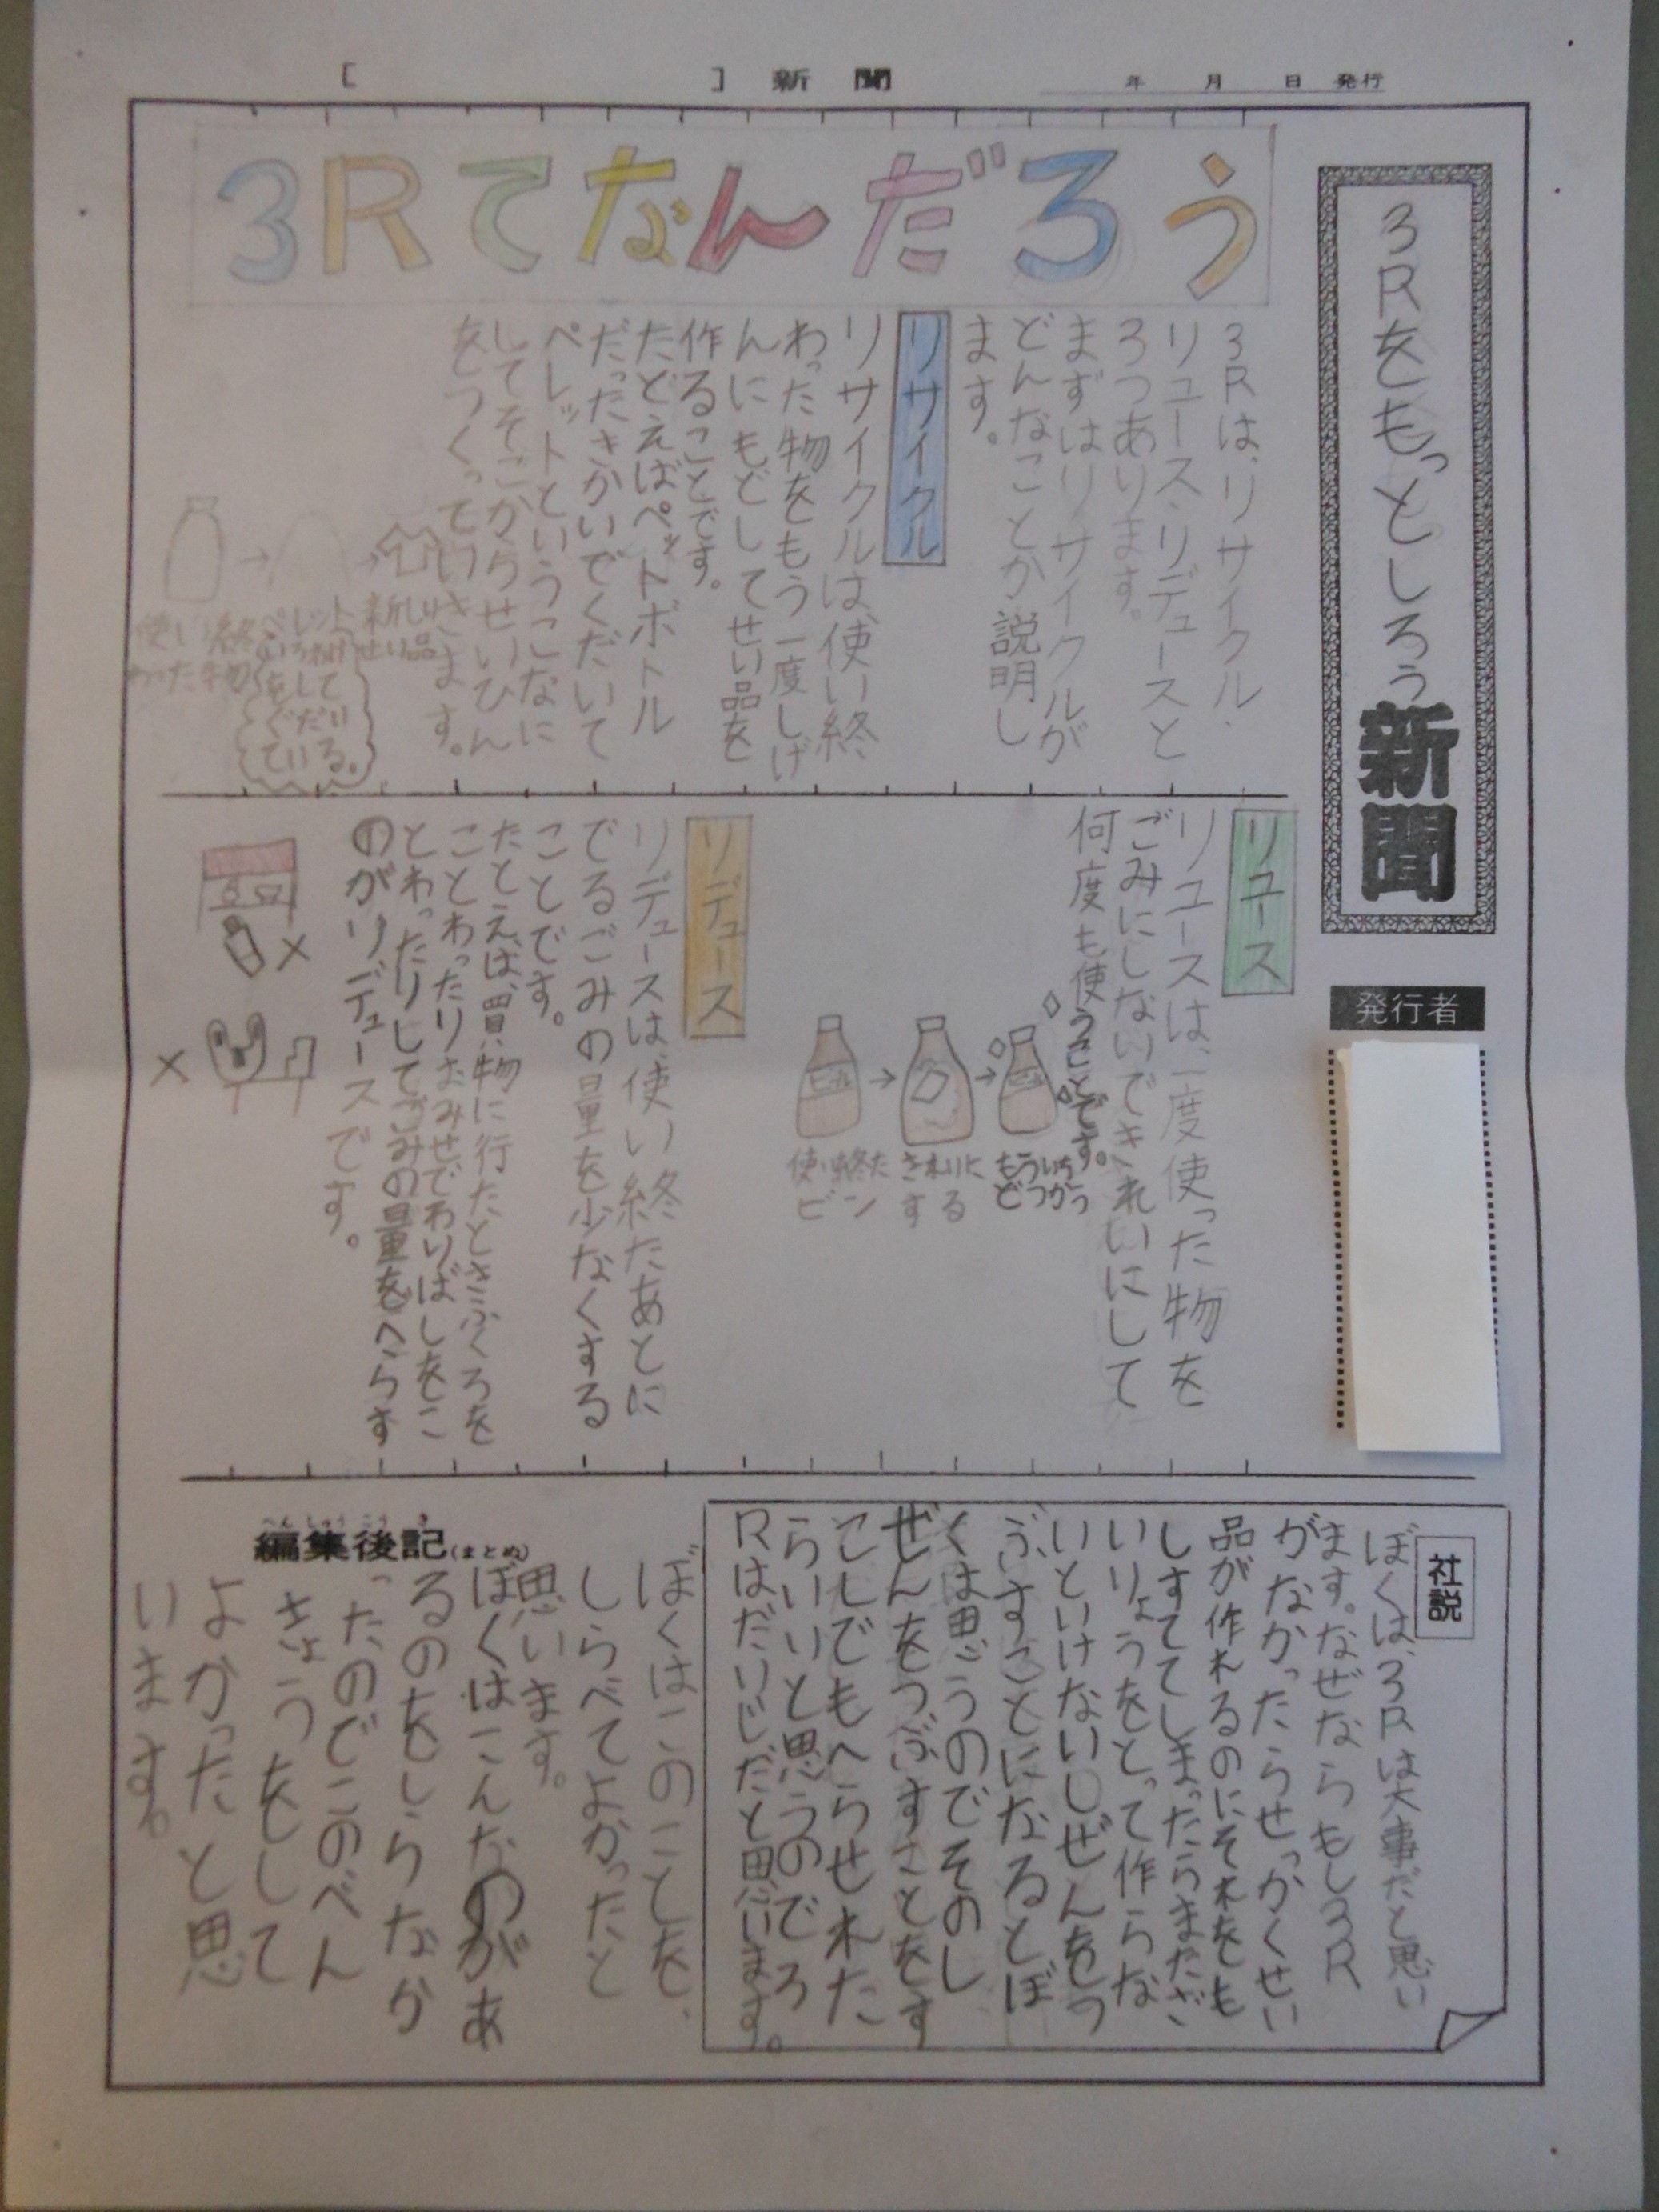 ［　］新聞
年　月　日　発行
3Rをもっとしろう新聞
発行者
3Rてなんだろう
3Rは、リサイクル・
リュース・リデュースと
3つあります。
まずはリサイクルが
どんなことか説明し
ます。
リサイクル
リサイクルは、使い終
わった物をもう一度しげ
んにもどしてせい品を
作ることです。
たとえばペットボトル
だったらきかいでくだいて
ペレットというこなに
してそこからせいひん
をつくっていきます。
使い終
わった物
ペレット
をして
くだい
ている。
新しい
せい品
リユース
リユースは、一度使った物を
ごみにしないできれいにして
何度も使うことです。
使い終た
ビン
きれいに
する
もういち
どつかう
リデュース
リデュースは、使い終たあとに
でるごみの量を少なくする
ことです。
たとえば、買い物に行たときふくろを
ことわったりおみせでわりばしをこ
とわったりしてごみの量をへらす
のがリデュースです。
社説
ぼくは、3Rは大事だと思い
ます。なぜならもし3R
がなかったらせっかくせい
品が作れるのにそれをも
しすててしまったらまたざ
いりょうをとって作らな
いといけないしぜんをつ
ぶすことになるとぼ
くは思うのでそのし
ぜんをつぶすことをす
こしでもへらせれた
らいいと思うので3
Rはだいじだと思います。
編集後記(まとめ)
へんしゅうこうき
ぼくはこのことを、
しらべてよかったと
思います。
ぼくはこんなのがあ
るのをしらなか
ったのでこのべん
きょうをして
よかったと思
います。